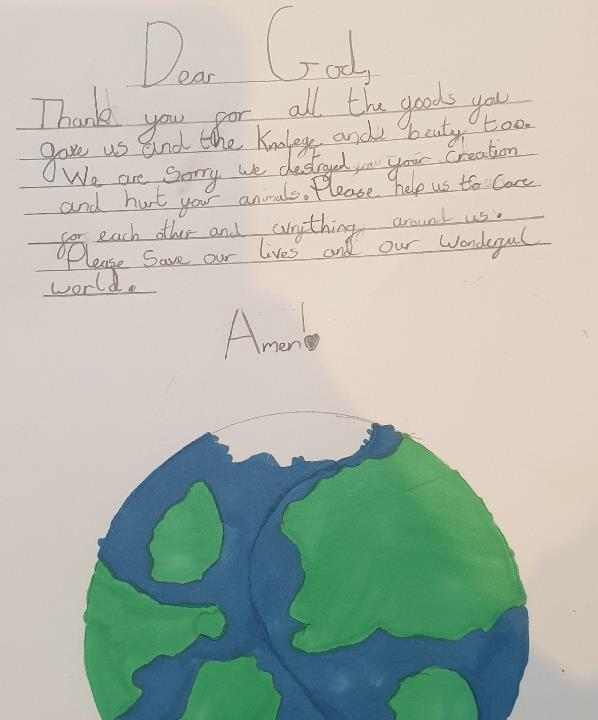 Dear God,
Thank you for all the goods you
gave us and the Knolege and beuty too.
We are sorry we destroyed your Creation
and hurt your animals. Please help us to Care
for each other and evrything around us.
Please Save our lives and our Wonderful
world.
Amen!